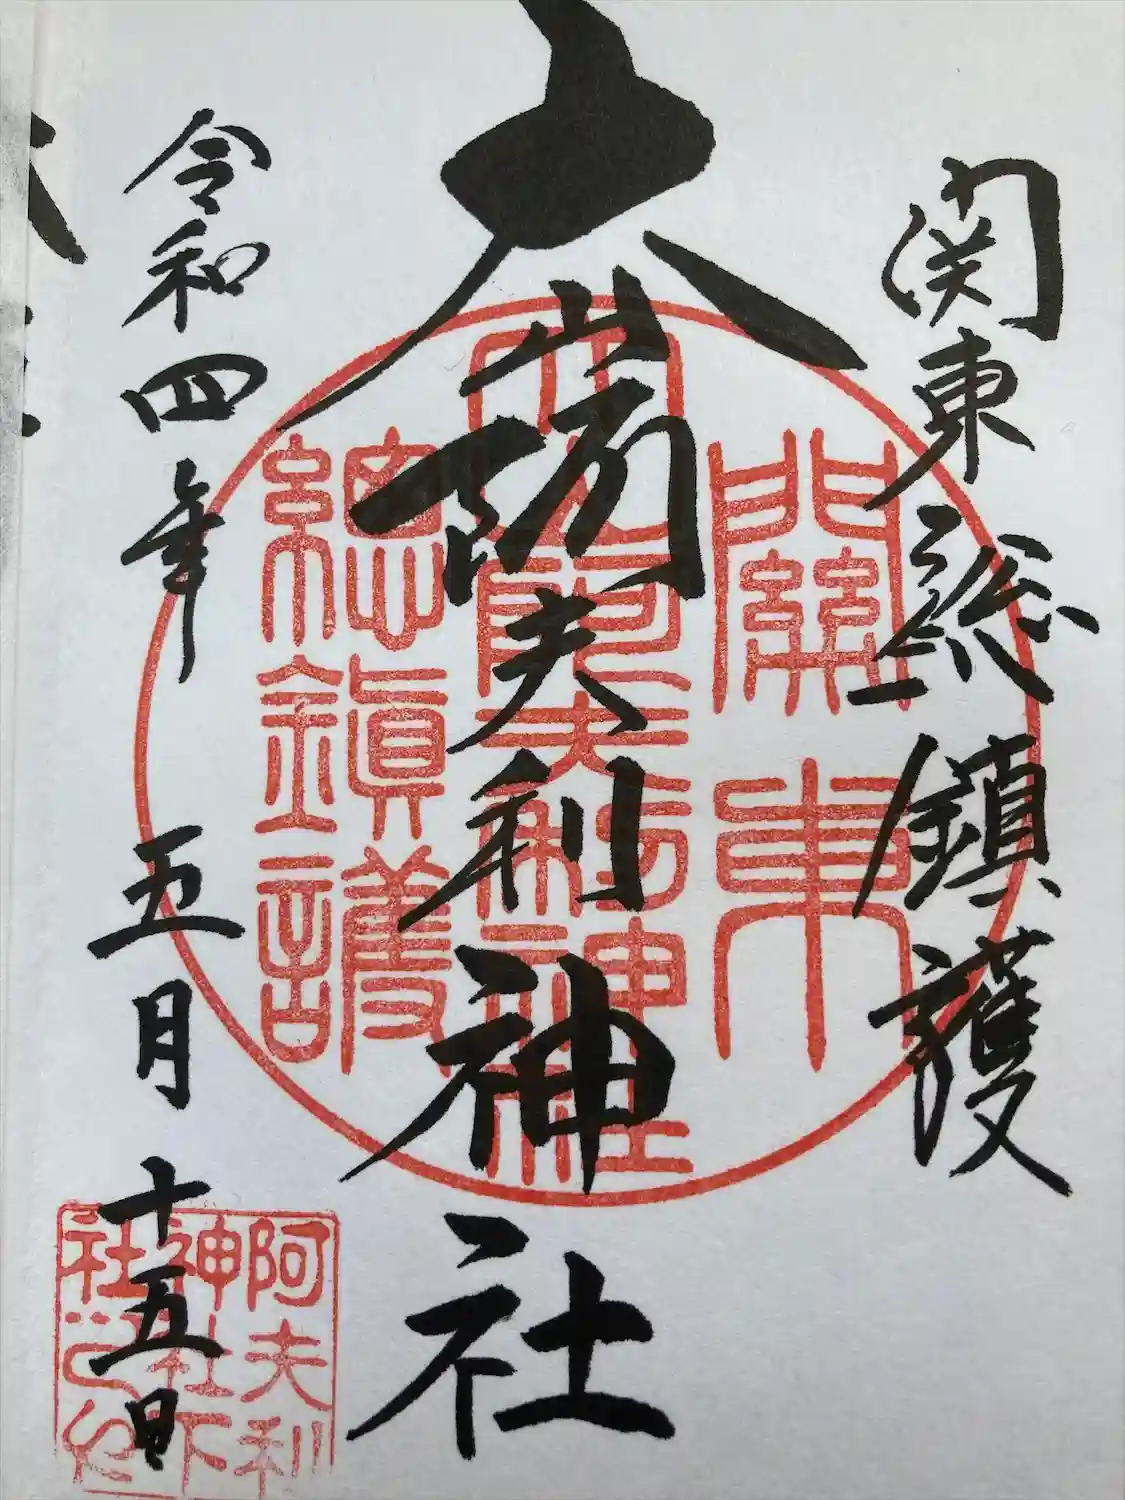 関東総鎮護
大山阿夫利神社
令和四年 五月 十五日
關東
大山阿夫利神社
總鎮護
阿夫利
神社下
社